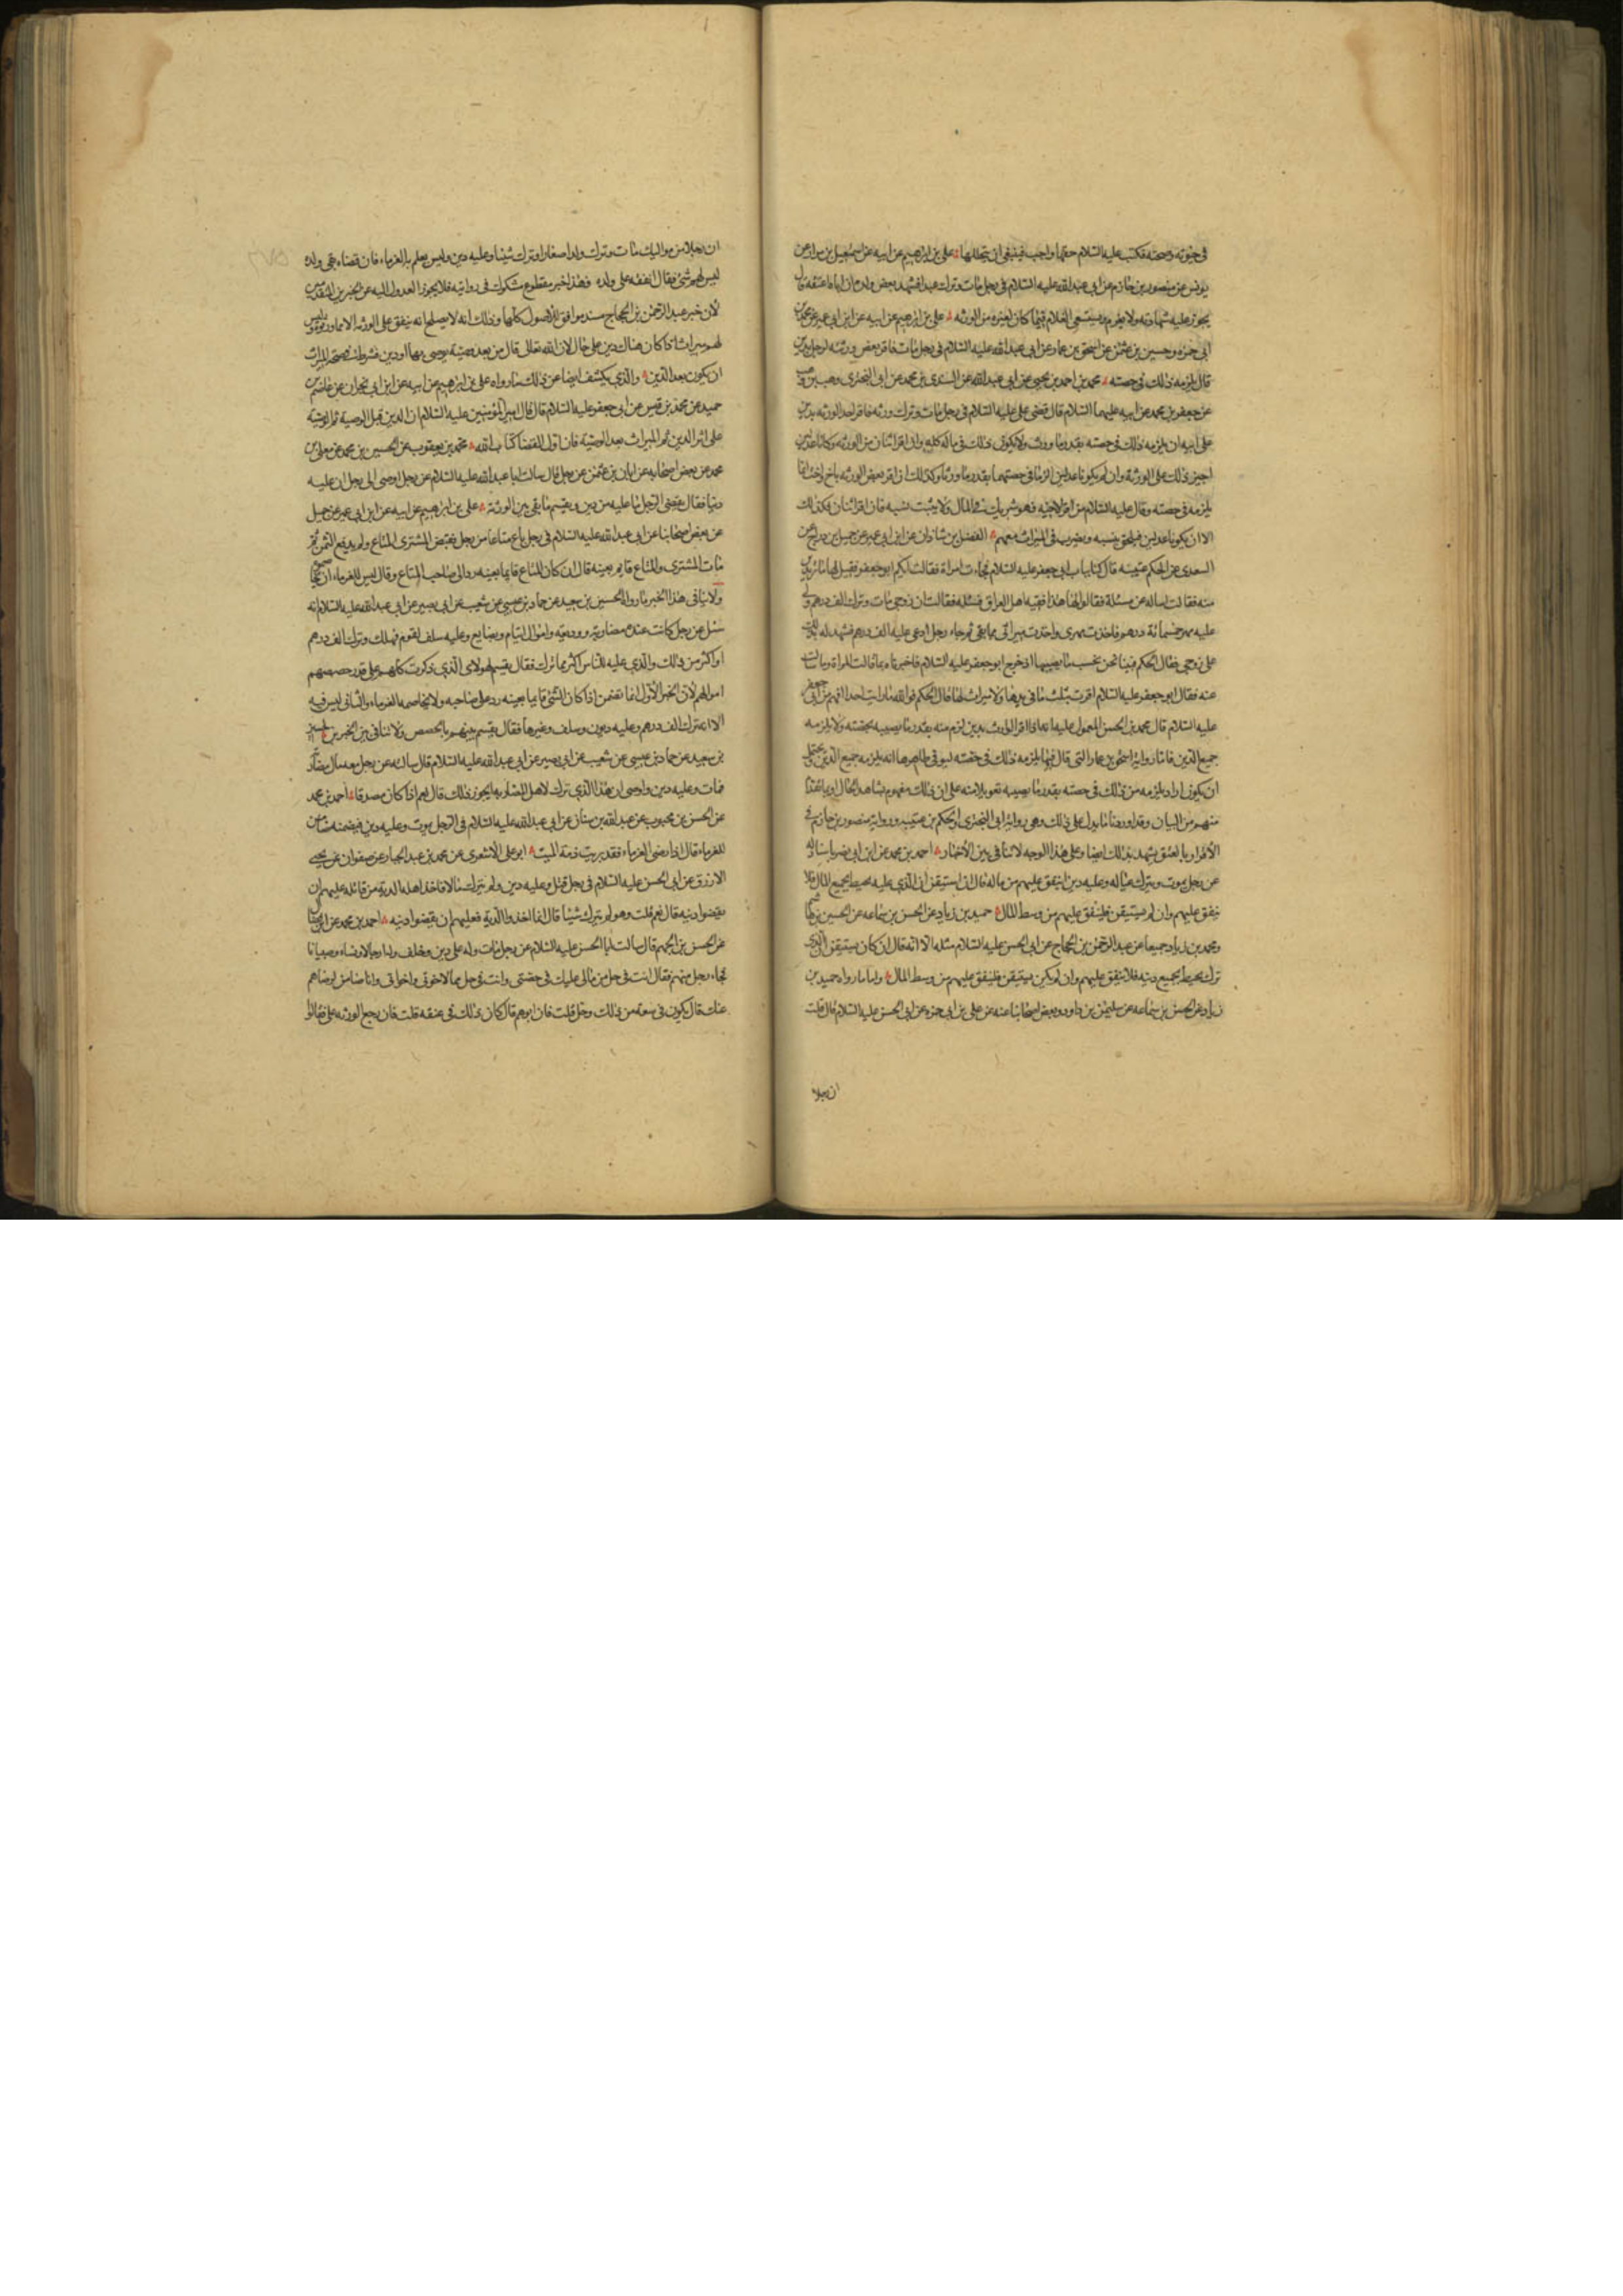 في حيوته وصحته فكتب عليه السلام حقها واجب فينبغي ان يتحللها علي بن ابرهيم عن ابيه عن اسمعيل بن مرار عن
يونس عن منصور بن حازم عن ابي عبد الله عليه السلام في رجل مات وترك عبدا فشهد بعض ولده ان اباه اعتقه قال
يجوز عليه شهادته ولا يغرم ويستسعى الغلام فيما كان لغيره من الورثه علي بن ابرهيم عن ابيه عن ابن ابي عمير عن محمد بن
ابي حمزه وحسين بن عثمن عن اسحق بن عمار عن ابي عبد الله عليه السلام في رجل مات فاقر بعض ورثته لرجل بدين
قال يلزمه ذلك في حصته محمد بن احمد بن يحيى عن ابي عبد الله عن السندي بن محمد عن ابي البختري وهب بن وهب
عن جعفر بن محمد عن ابيه عليهما السلام قال قضى علي عليه السلام في رجل مات وترك ورثه فاقر احد الورثه بدين
على ابيه ان يلزمه ذلك في حصته بقدر ما ورث ولا يكون ذلك في ماله كله وان اقر اثنان من الورثه وكانا عدلين
اجيز ذلك على الورثة وان لم يكونا عدلين الزما في حصتهما بقدر ما ورثا وكذلك ان اقر بعض الورثه باخ او اخت انما
يلزمه في حصته وقال عليه السلام من اقر لاخيه فهو شريك في المال ولا يثبت نسبه فان اقر اثنان فكذلك
الا ان يكونا عدلين فيلحق بنسبه ويضرب في الميراث معهم الفضل بن شاذان عن ابن ابي عمير عن جميل بن دراج عن
السعدي عن الحكم عتيبه قال كنا بباب ابي جعفر عليه السلام فجاءت امراة فقالت ايكم ابو جعفر فقيل لها ما تريدين
منه فقالت اساله عن مسئلة فقالوا لها هذا فقيه اهل العراق فسئليه فقالت ان زوجي مات وترك الف درهم ولي
عليه مهر خمسمائة درهم فاخذت مهري واخذت ميراثي مما بقي ثم جاء رجل ادعى عليه الف درهم فشهدت له بذلك
على زوجي فقال الحكم فبينا نحن نحسب ما يصيبها اذ خرج ابو جعفر عليه السلام فاخبرناه بما قالت المراة وما سالت
عنه فقال ابو جعفر عليه السلام اقرت بثلث ما في يديها ولا ميراث لها قال الحكم فوالله ما رايت احدا افهم من ابي جعفر
عليه السلام قال محمد بن الحسن المعمول عليه انه اذا اقر الوارث بدين لزم منه بقدر ما يصيبه بحصته ولا يلزمه
جميع الدين فاما رواية اسحق بن عمار التي قال فيها يلزمه ذلك في حصته ليس في ظاهرها انه يلزمه جميع الدين يحتمل
ان يكون اراد يلزمه من ذلك في حصته بقدر ما يصيبه
منهم من البيان وقد اوردنا ما يدل على ذلك وهي رواية ابي البختري والحكم بن عتيبه ورواية منصور بن حازم في
الاقرار بالعتق يشهد بذلك ايضا وعلى هذا الوجه لا تنافي بين الاخبار احمد بن محمد عن ابن ابي نصر باسناد له
عن رجل يموت ويترك عيالا وعليه دين اينفق عليهم من ماله قال ان استيقن ان الذي عليه يحيط بجميع المال فلا
ينفق عليهم وان لم يستيقن فلينفق عليهم من وسط المال حميد بن زياد عن الحسن بن سماعه عن الحسين بن هاشم
ومحمد بن زياد جميعا عن عبد الرحمن بن الحجاج عن ابي الحسن عليه السلام مثله الا انه قال ان كان يستيقن ان الذي
ترك يحيط بجميع دينه فلا ينفق عليهم وان لم يكن يستيقن فلينفق عليهم من وسط المال واما ما رواه حميد بن
زياد عن الحسن بن سماعه عن سليمن بن داود وبعض اصحابنا عنه عن علي بن ابي حمزه عن ابي الحسن عليه السلام قال قلت
ان رجلا
ان رجلا من مواليك مات وترك ولدا صغارا وترك شيئا وعليه دين وليس يعلم به الغرماء فان قضاه بقي ولده
ليس لهم شئ فقال انفقه على ولده فهذا خبر مقطوع مشكوك في روايته فلا يجوز العدول اليه عن الخبرين المتقدمين
لان خبر عبد الرحمن بن الحجاج مسند موافق للاصول كلها وذلك انه لا يصلح انه ينفق على الورثه الا مما ورثوه وليس
لهم ميراث اذا كان هناك دين على حال لان الله تعالى قال من بعد وصية يوصى بها او دين فشرط في صحة الميراث
ان يكون بعد الدين والذي يكشف ايضا عن ذلك ما رواه علي بن ابرهيم عن ابيه عن ابن ابي نجران عن عاصم بن
حميد عن محمد بن قيس عن ابي جعفر عليه السلام قال قال امير المؤمنين عليه السلام ان الدين قبل الوصية ثم الوصية
على اثر الدين ثم الميراث بعد الوصية فان اول القضا كتاب الله محمد بن يعقوب عن الحسين بن محمد عن معلى بن
محمد عن بعض اصحابه عن ابان بن عثمن عن رجل قال سالت ابا عبد الله عليه السلام عن رجل اوصى الى رجل ان عليه
دينا فقال يقضي الرجل ما عليه من دين ويقسم ما بقي بين الورثة علي بن ابرهيم عن ابيه عن ابن ابي عمير عن جميل
عن بعض اصحابنا عن ابي عبد الله عليه السلام في رجل باع متاعا من رجل فقبض المشتري المتاع ولم يدفع الثمن ثم
مات المشتري والمتاع قايم بعينه قال ان كان المتاع قايما بعينه رد الى صاحب المتاع وقال ليس للغرماء ان يخاصموه
ولا ينافي هذا الخبر ما رواه الحسين بن سعيد عن حماد بن عيسى عن شعيب عن ابي بصير عن ابي عبد الله عليه السلام انه
سئل عن رجل كانت عنده مضاربة ووديعة واموال ايتام وبضايع وعليه سلف لقوم فهلك وترك الف درهم
او اكثر من ذلك والذي عليه للناس اكثر مما ترك فقال يقسم لهولاي الذي ذكرت كلهم على قدر حصصهم
اموالهم لان الخبر الاول انما تضمن اذا كان الشئ قايما بعينه رد على صاحبه ولا يخاصمه الغرماء والثاني ليس فيه
الا انه ترك الف درهم وعليه ديون وسلف وغيرها فقال يقسم بينهم بالحصص ولا تنافي بين الخبرين الحسين
بن سعيد عن حماد بن عيسى عن شعيب عن ابي بصير عن ابي عبد الله عليه السلام قال سالته عن رجل معه مال مضاربة
فمات وعليه دين واوصى ان هذا الذي ترك لاهل المضاربه ايجوز ذلك قال نعم اذا كان مصدقا احمد بن محمد
عن الحسن بن محبوب عن عبد الله بن سنان عن ابي عبد الله عليه السلام في الرجل يموت وعليه دين فيضمنه ضامن
للغرماء قال اذا رضى الغرماء فقد برئت ذمة الميت ابو علي الاشعري عن محمد بن عبد الجبار عن صفوان عن يحيى
الازرق عن ابي الحسن عليه السلام في رجل قتل وعليه دين ولم يترك مالا فاخذ اهله الدية من قاتله عليهم ان
يقضوا دينه قال نعم قلت وهو لم يترك شيئا قال انما اخذوا الدية فعليهم ان يقضوا دينه احمد بن محمد عن
عن الحسن بن الجهم قال سالت ابا الحسن عليه السلام عن رجل مات وله علي دين وخلف ولدا رجالا ونساء وصبيانا
فجاء رجل منهم فقال انت في حل من مالي عليك في حصتي وانت في حل مما لاخوتي واخواتي وانا ضامن لرضاهم
عنك قال يكون في سعة من ذلك وحل قلت فان لم يعطهم قال كان ذلك في عنقه قلت فان رجع الورثه علي فقالوا